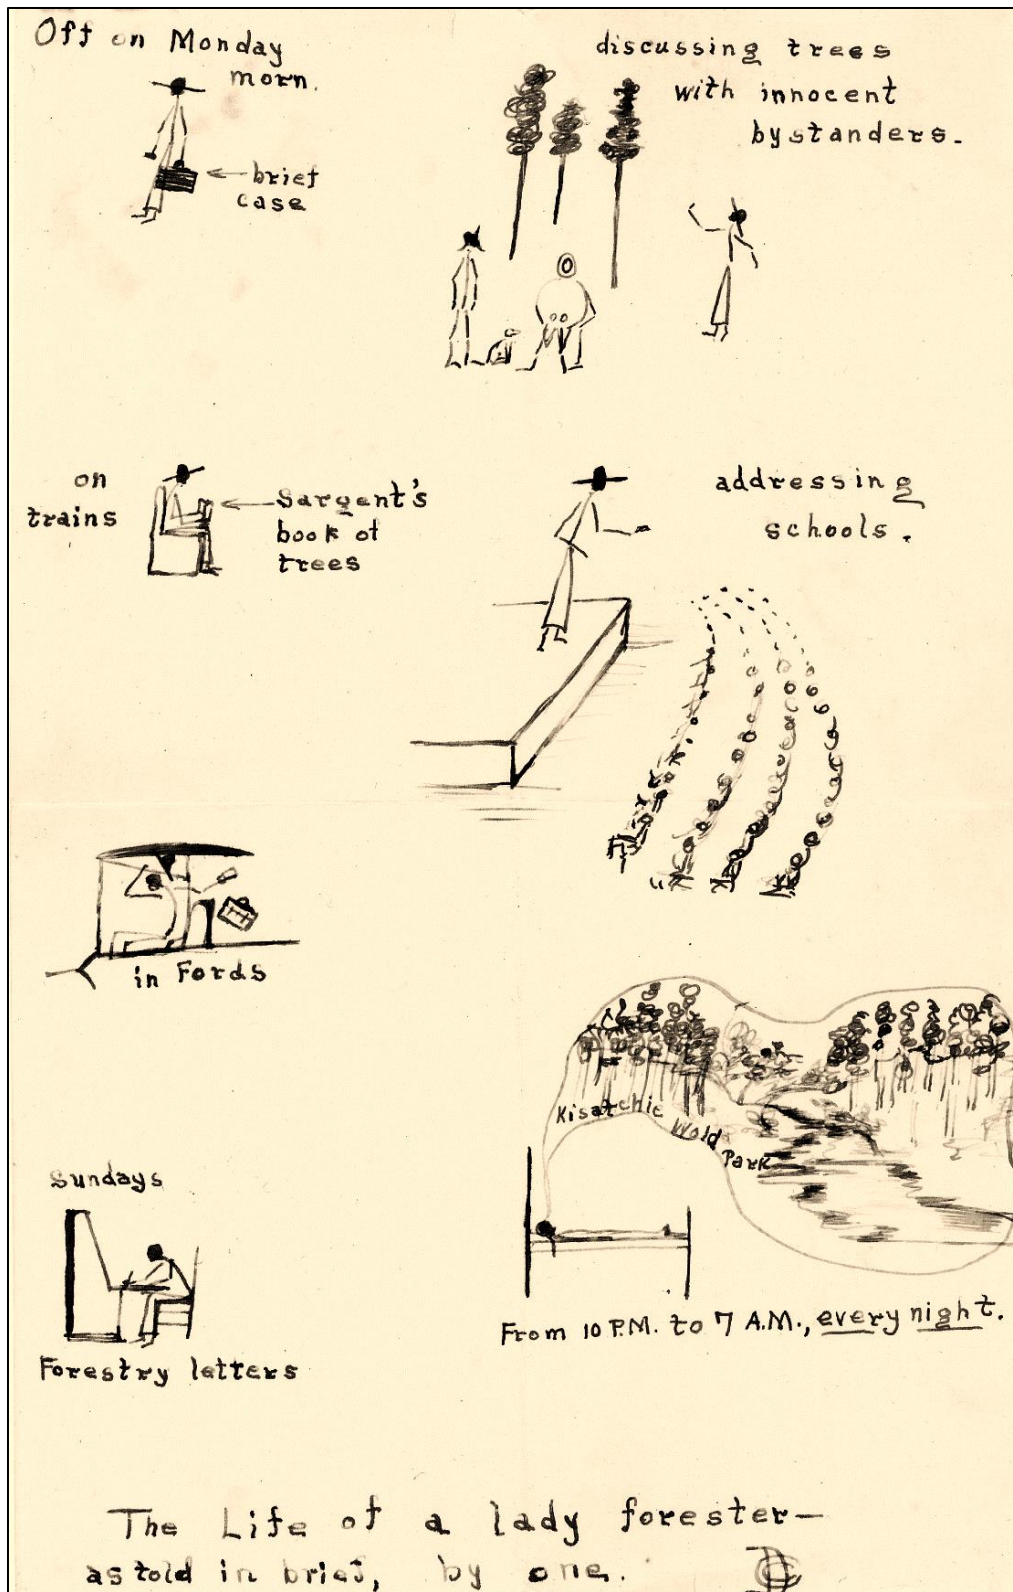 Off on Monday
morn.
brief
case
discussing trees
with innocent
bystanders.
on
trains
Sargent's
book of
trees
addressing
schools.
in Fords
Kisatchie
Wold
Park
From 10 P.M. to 7 A.M., every night.
Sundays
Forestry letters
The Life of a lady forester—
as told in brief, by one.